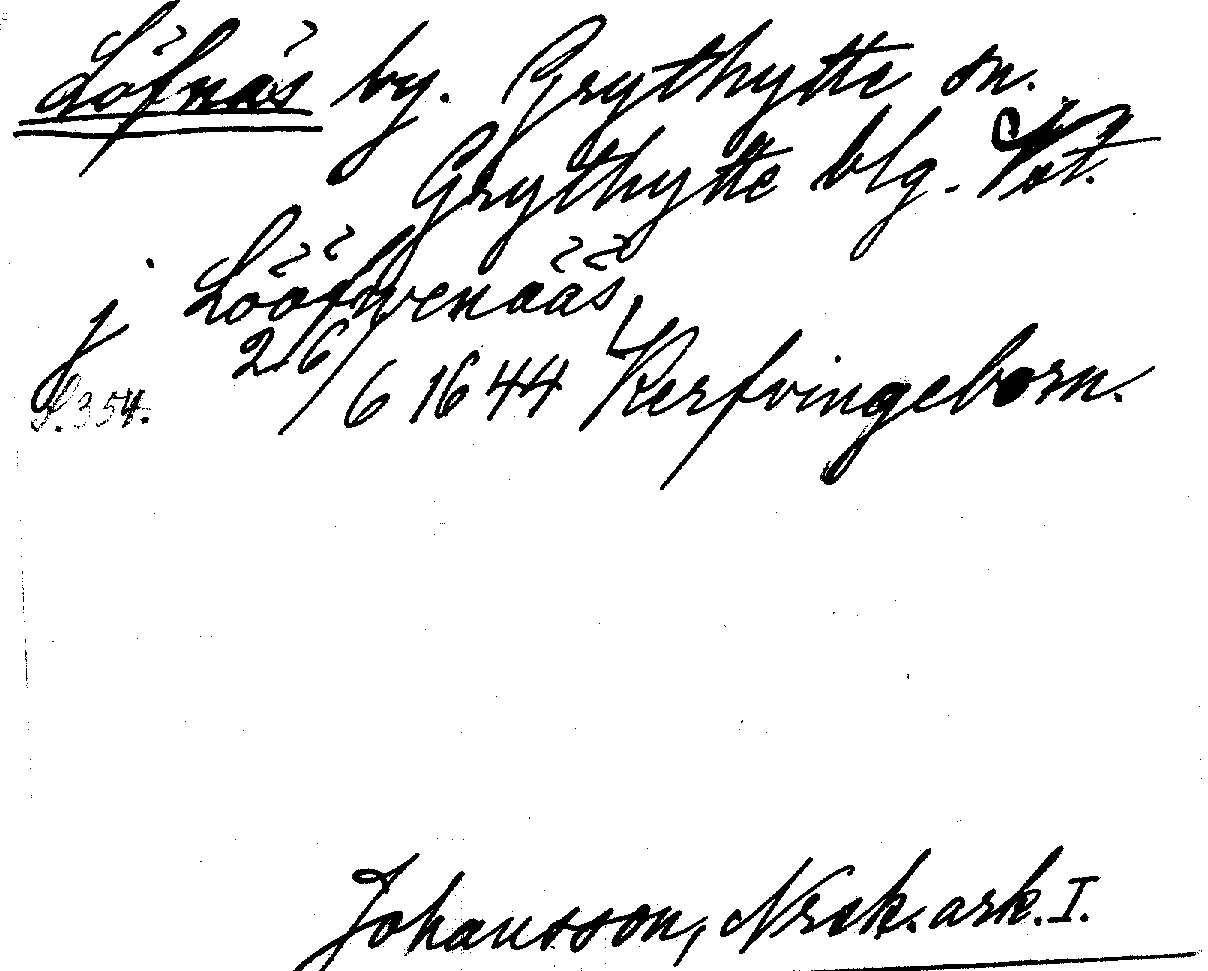 Löfnäs by. Grythytte sn.
Grythytte blg. Vstm.
j Lööfwenääs,
S. 354. 26/6 1644 Kerfvingeborn.
Johansson, Nrsk. ark. I.